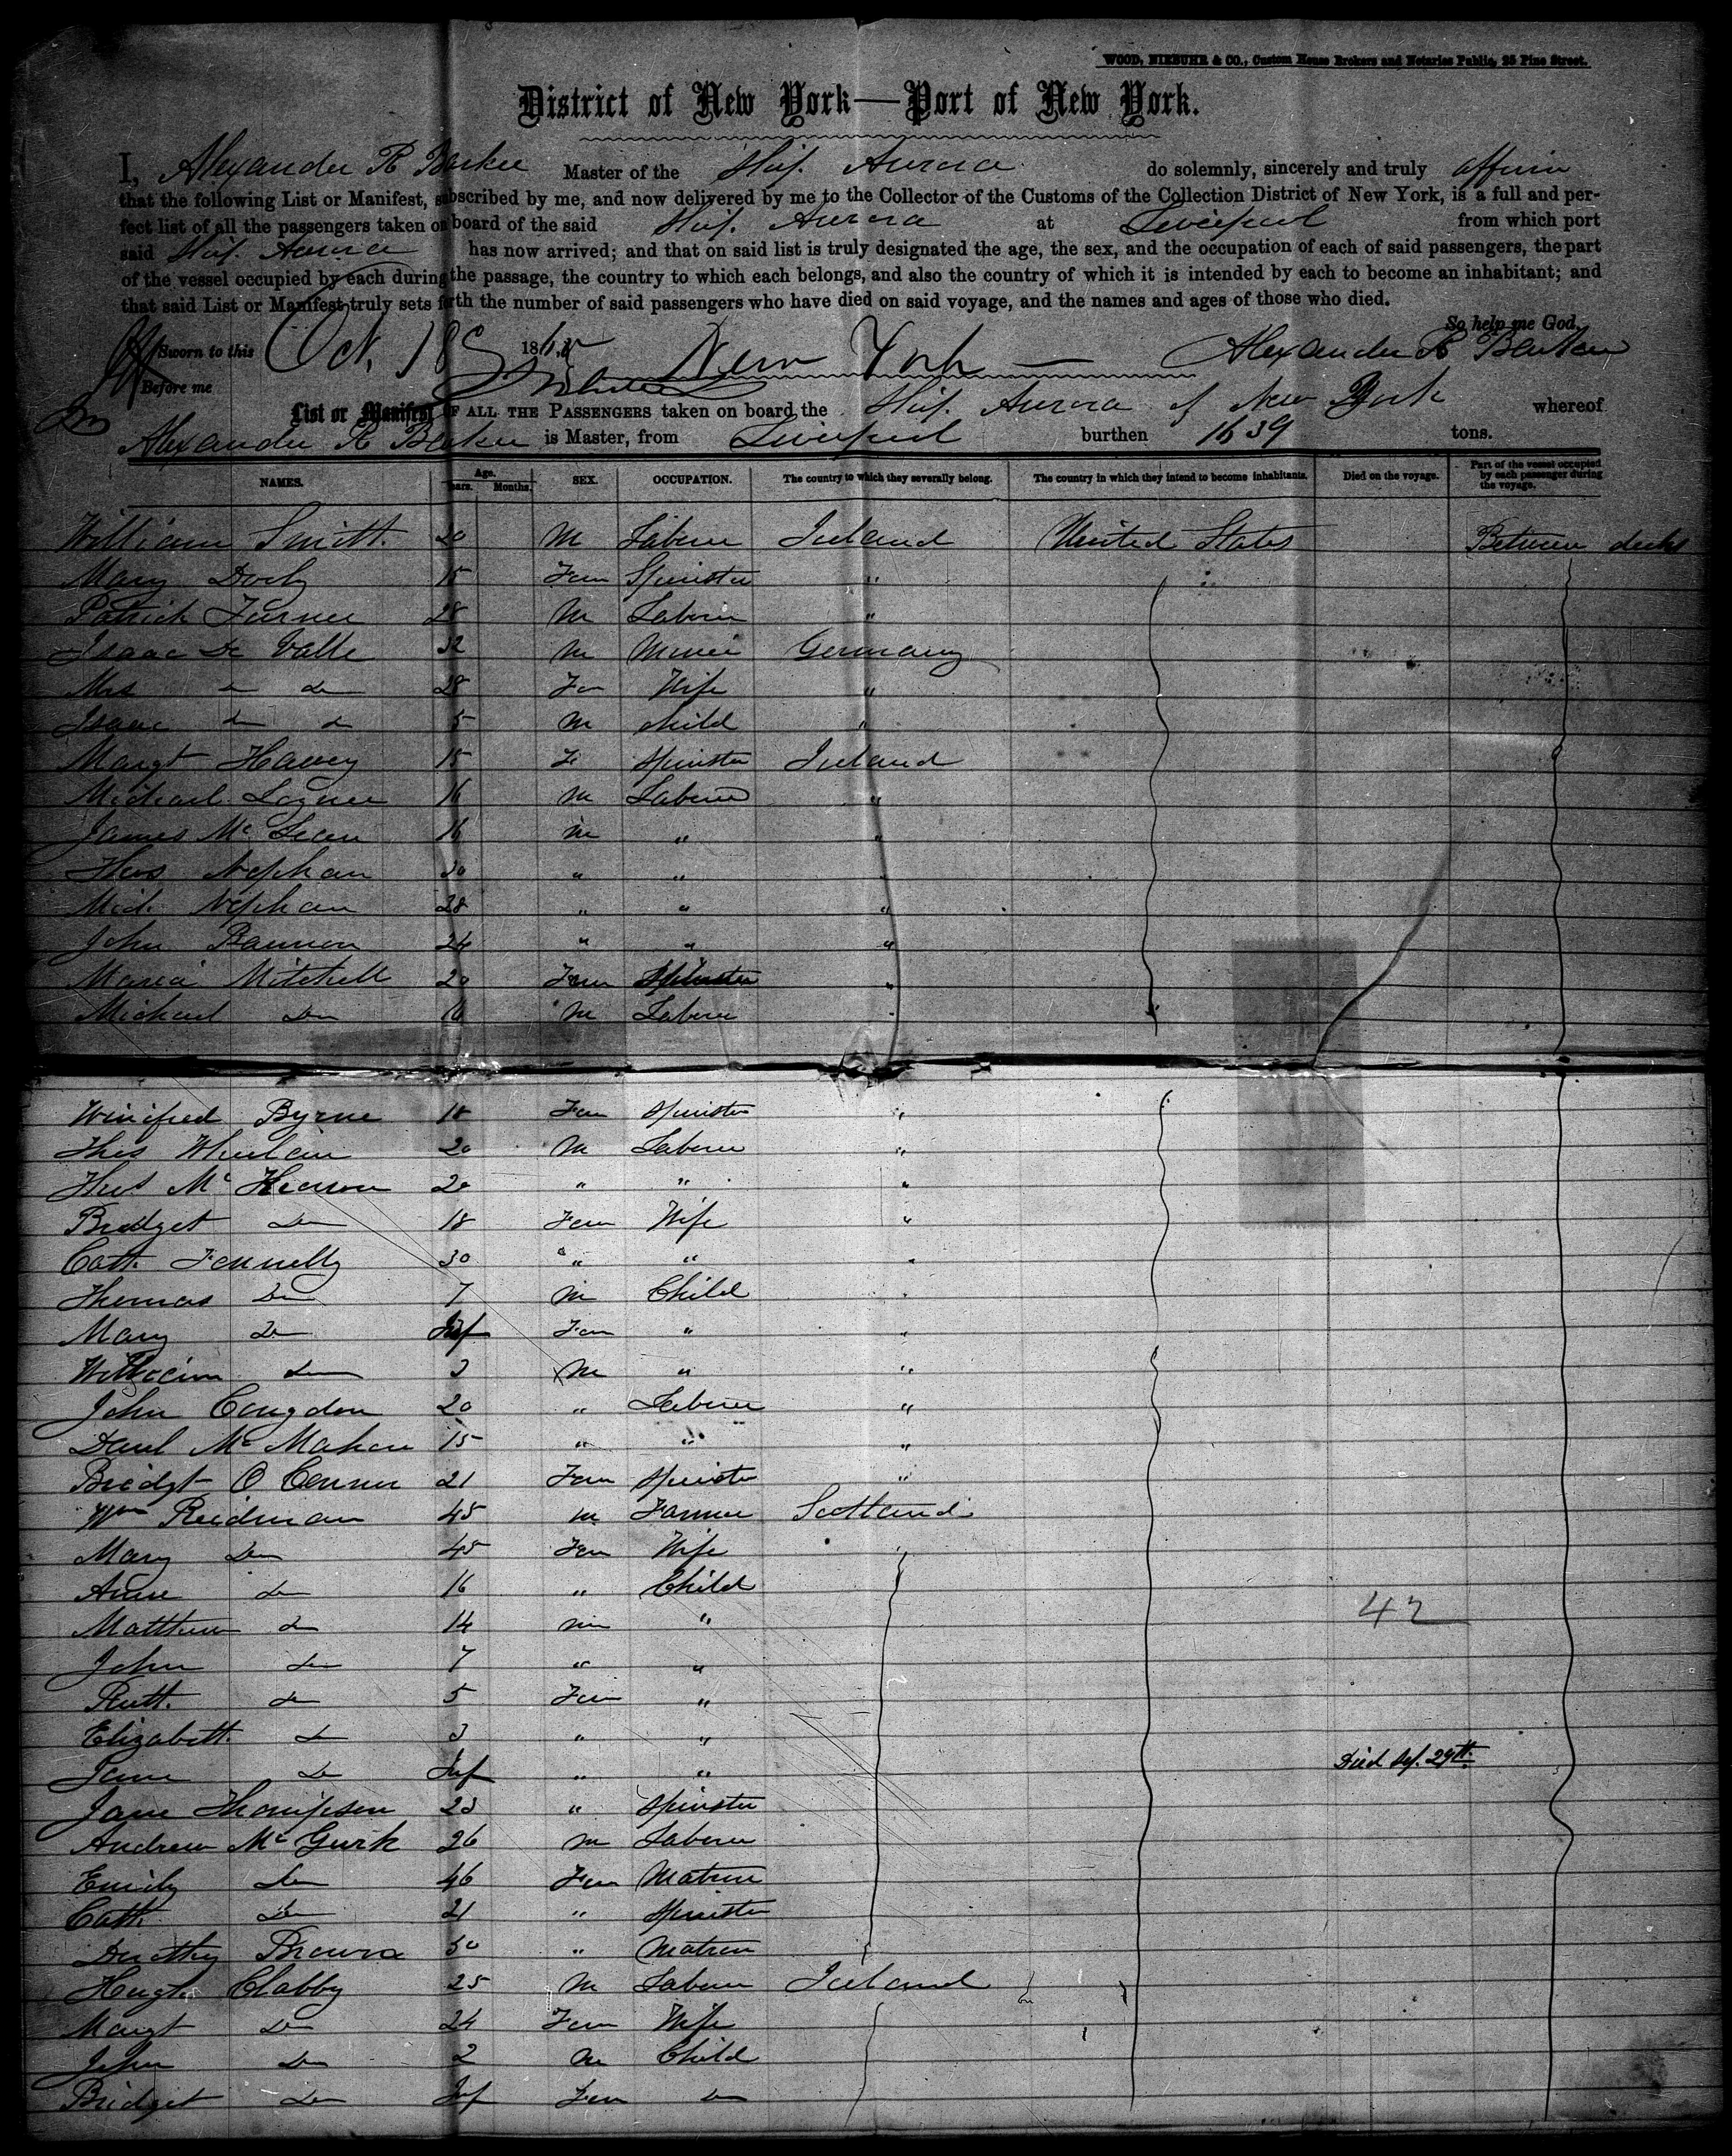 WOOD, NIEBUHR & CO., Custom House Brokers and Notaries Public, 25 Pine Street.
District of New York—Port of New York.
I, Alexander R Barker Master of the Ship Aurora do solemnly, sincerely and truly affirm
that the following List or Manifest, subscribed by me, and now delivered by me to the Collector of the Customs of the Collection District of New York, is a full and per-
fect list of all the passengers taken on board of the said Ship Aurora at Liverpool from which port
said Ship Aurora has now arrived; and that on said list is truly designated the age, the sex, and the occupation of each of said passengers, the part
of the vessel occupied by each during the passage, the country to which each belongs, and also the country of which it is intended by each to become an inhabitant; and
that said List or Manifest truly sets forth the number of said passengers who have died on said voyage, and the names and ages of those who died.
So help me God,
Sworn to this Oct. 18 1865 New York — Alexander R Barker
Before me
List or Manifest OF ALL THE PASSENGERS taken on board the Ship Aurora of New York whereof
Alexander R Barker is Master, from Liverpool burthen 1639 tons.
NAMES. Age. Years. Months. SEX. OCCUPATION. The country to which they severally belong. The country in which they intend to become inhabitants. Died on the voyage. Part of the vessel occupied by each passenger during the voyage.
William Smith 20 M Laborer Ireland United States Between decks
Mary 15 Fem Spinster "
Patrick 28 M Laborer "
Isaac De Valle 32 M Miner Germany
Mrs do do 28 Fe Wife "
Isaac do do 5 M child "
Margt 15 Fe Spinster Ireland
Michael 16 M Laborer "
James Mc Lean 16 M " "
Thos Nephan 30 " " "
Mich. Nephan 28 " " "
John Bannon 24 " " "
Maria Mitchell 20 Fem Spinster "
Michael do 16 M Laborer "
Winifred Byrne 18 Fem Spinster "
Thos Whelan 20 M Laborer "
Thos Mc 20 " " "
Bridget do 18 Fem Wife "
Cath. Fennelly 30 " " "
Thomas do 7 M Child "
Mary do Inf Fem " "
William do 3 M " "
John Congdon 20 " Laborer "
Danl Mc Mahon 15 " " "
Bridgt O Connor 21 Fem Spinster "
Wm Reidman 45 M Farmer Scotland
Mary do 45 Fem Wife "
Anne do 16 " Child
Matthew do 14 M " 42
John do 7 " "
Ruth do 5 Fem "
Elizabeth do 3 " "
Jane do Inf " " Died Sep. 29th.
Jane Thompson 23 " Spinster
Andrew Mc Gurk 26 M Laborer
Emily do 46 Fem Matron
Cath. do 21 " Spinster
Dorothy Brown 50 " Matron
Hugh Clabby 25 M Laborer Ireland
Margt do 24 Fem Wife
John do 2 M Child
Bridget do Inf Fem do